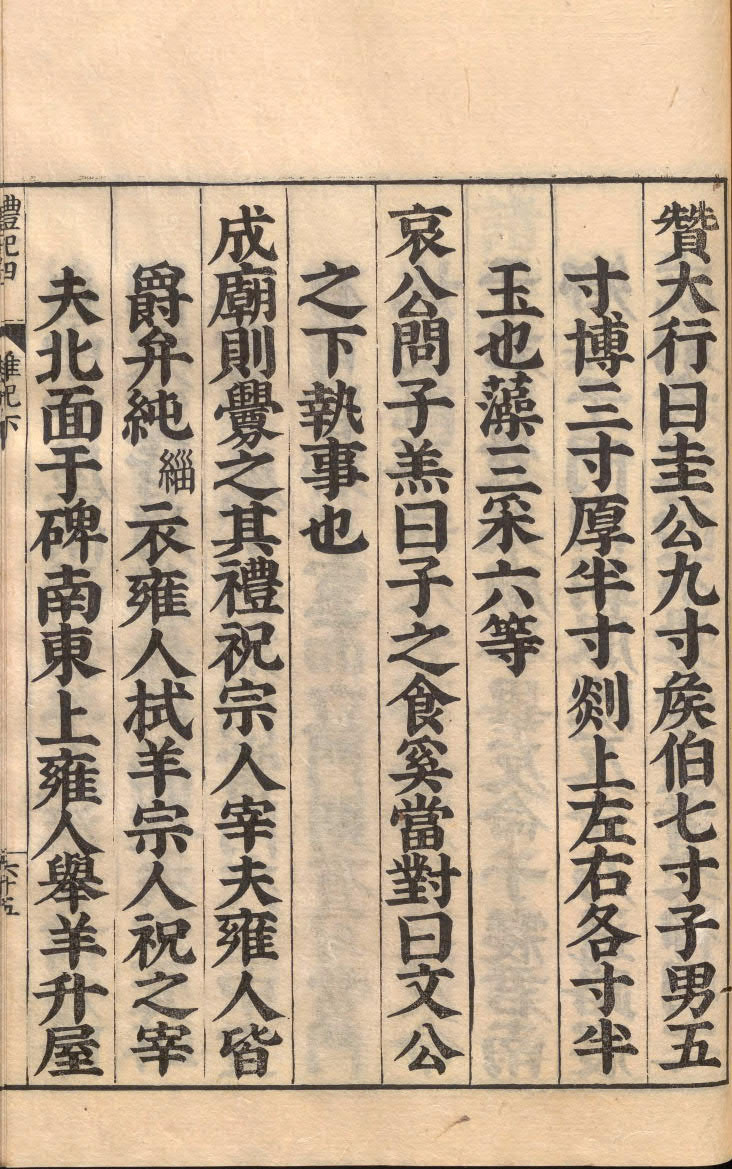 贊大行曰圭公九寸矦伯七寸子男五
寸博三寸厚半寸剡上左右各寸半
玉也藻三采六等
哀公問子羔曰子之食奚當對曰文公
之下執事也
成廟則釁之其禮祝宗人宰夫雍人皆
爵弁純緇衣雍人拭羊宗人祝之宰
夫北面于碑南東上雍人舉羊升屋
禮記四 雜記下 六十五